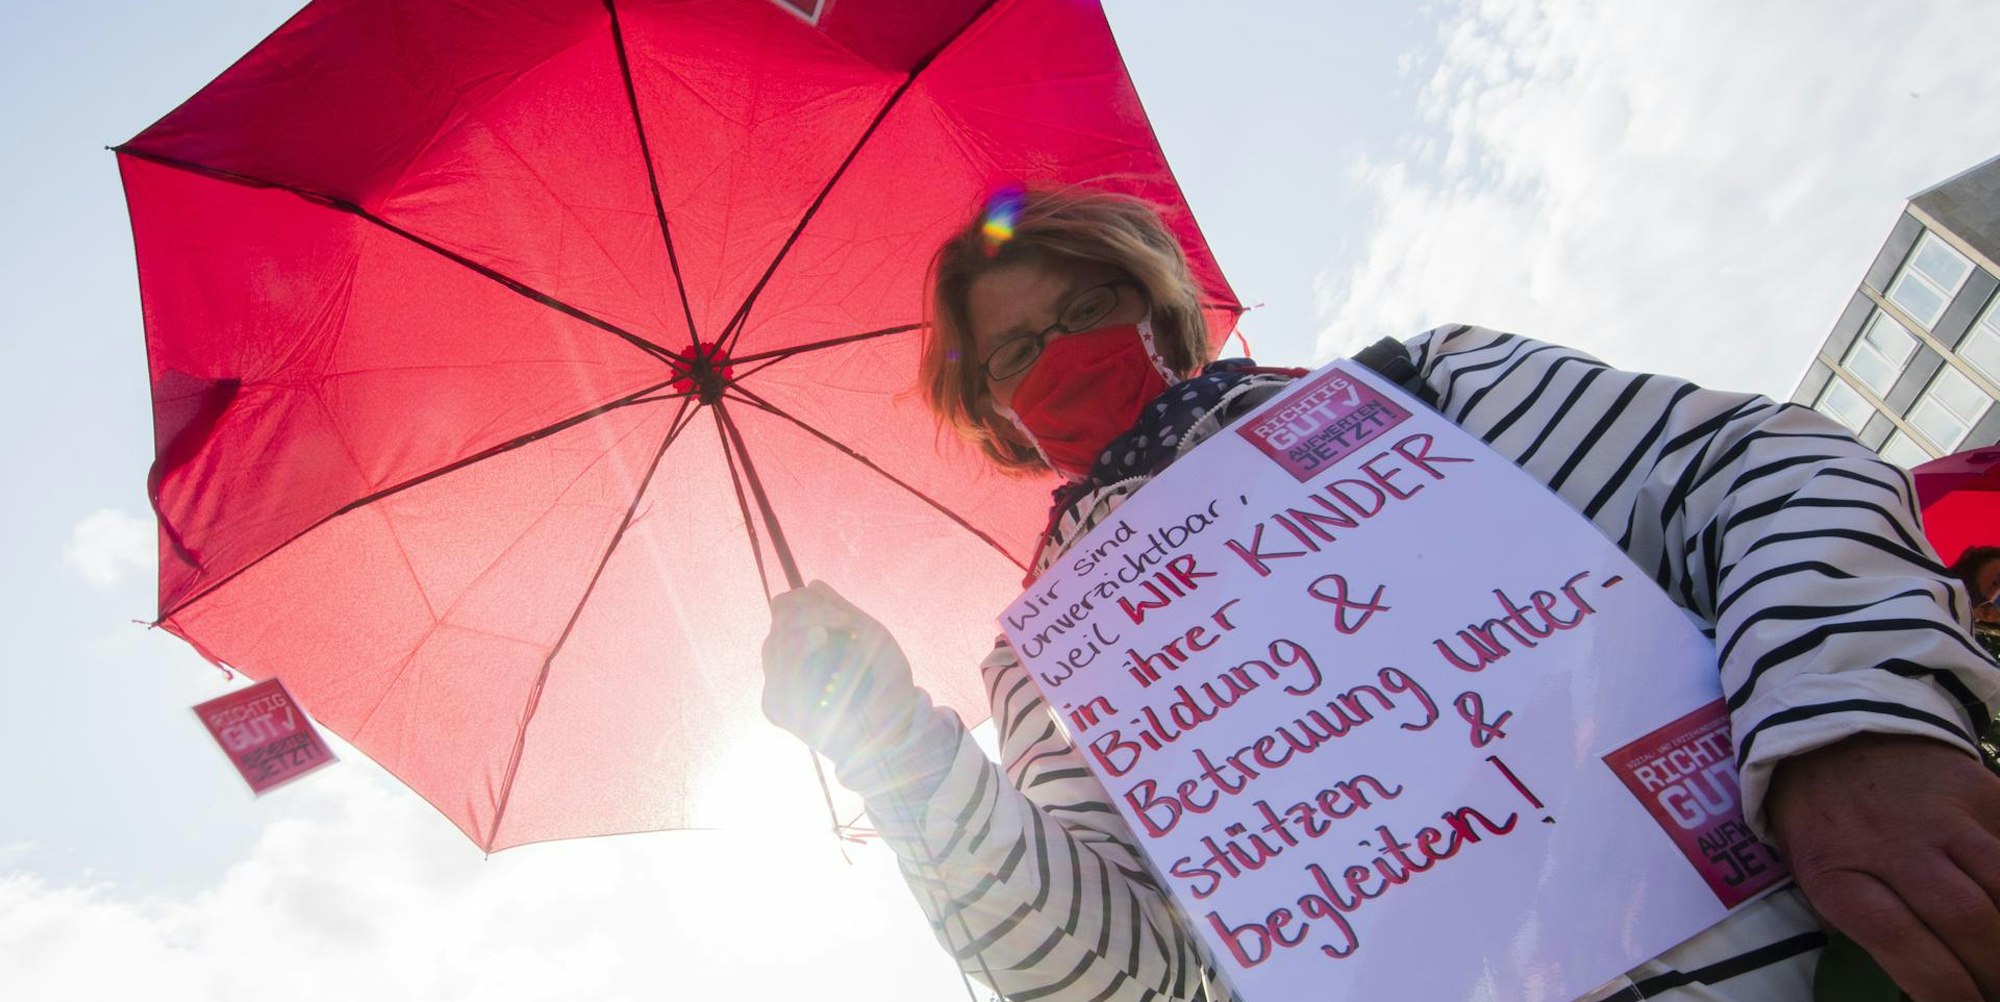 RICHTIG
GUT
AUFWERTEN
JETZT!
Wir sind
unverzichtbar,
weil WIR KINDER
in ihrer
Bildung &
Betreuung unter-
stützen &
begleiten!
RICHTIG
GUT
JETZT!
RICHTI
GUT
AUFW
JET